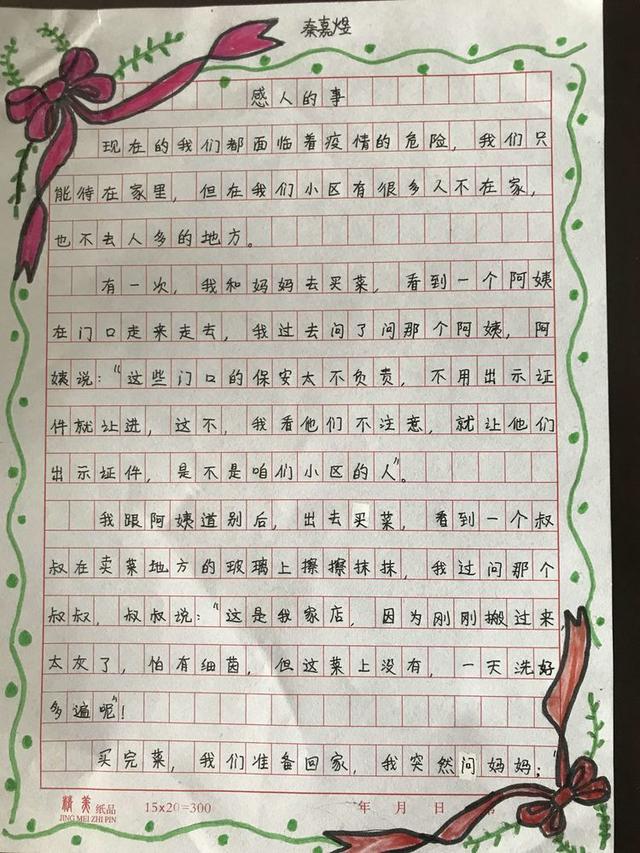 秦嘉煜
感人的事
现在的我们都面临着疫情的危险，我们只
能待在家里，但在我们小区有很多人不在家，
也不去人多的地方。
有一次，我和妈妈去买菜，看到一个阿姨
在门口走来走去，我过去问了问那个阿姨，阿
姨说：“这些门口的保安太不负责，不用出示证
件就让进，这不，我看他们不注意，就让他们
出示证件，是不是咱们小区的人”。
我跟阿姨道别后，出去买菜，看到一个叔
叔在卖菜地方的玻璃上擦擦抹抹，我过问那个
叔叔，叔叔说：“这是我家店，因为刚刚搬过来，
太灰了，怕有细菌，但这菜上没有，一天洗好
多遍呢”！
买完菜，我们准备回家，我突然问妈妈：“
精美纸品 15×20=300 年 月 日 第
JING MEI ZHI PIN